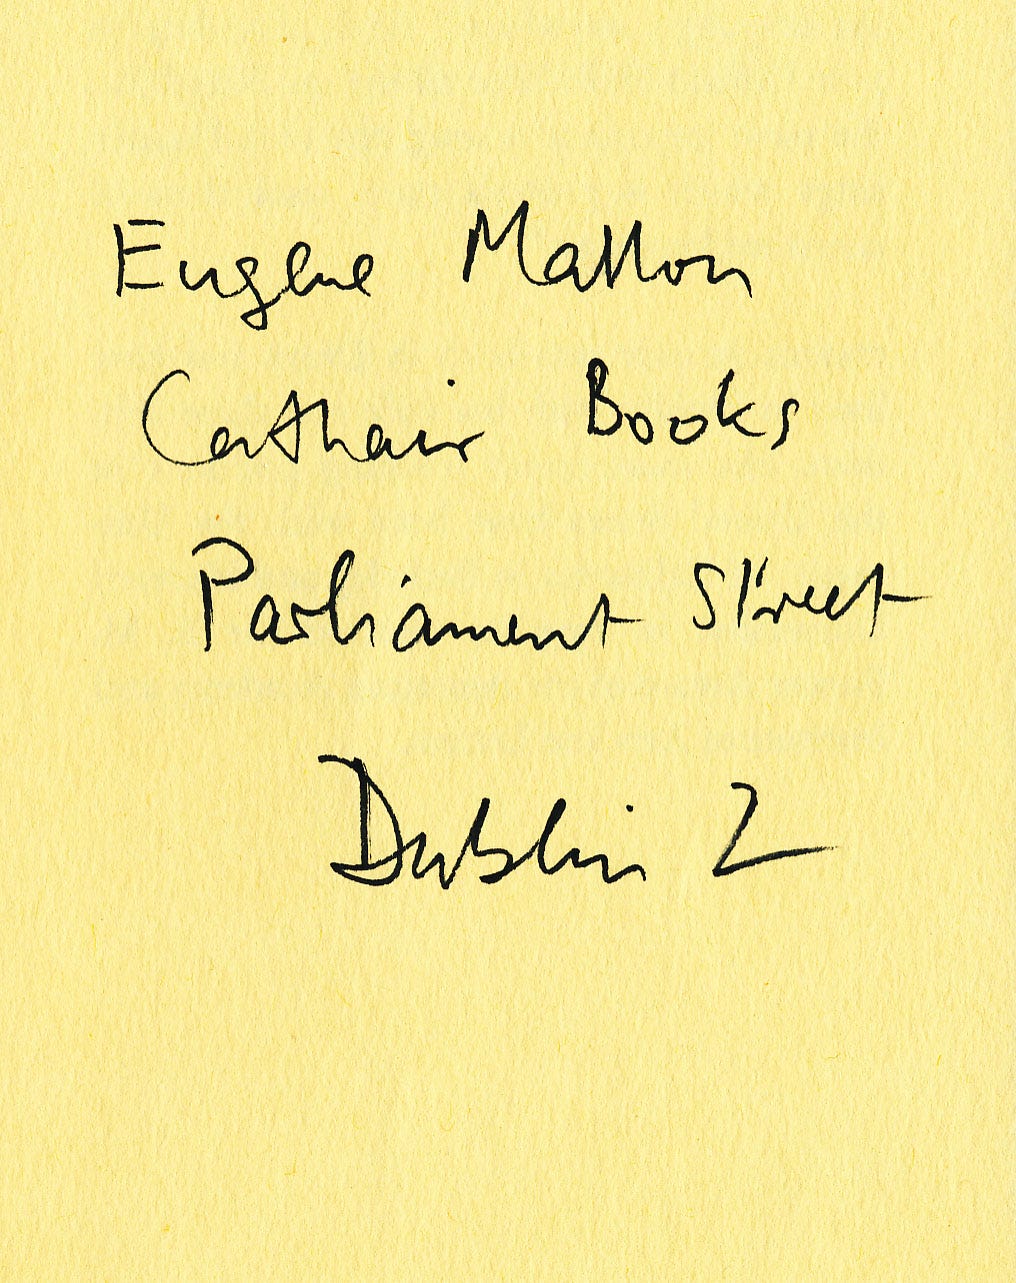 Eugene Mallon
Cathair Books
Parliament Street
Dublin 2